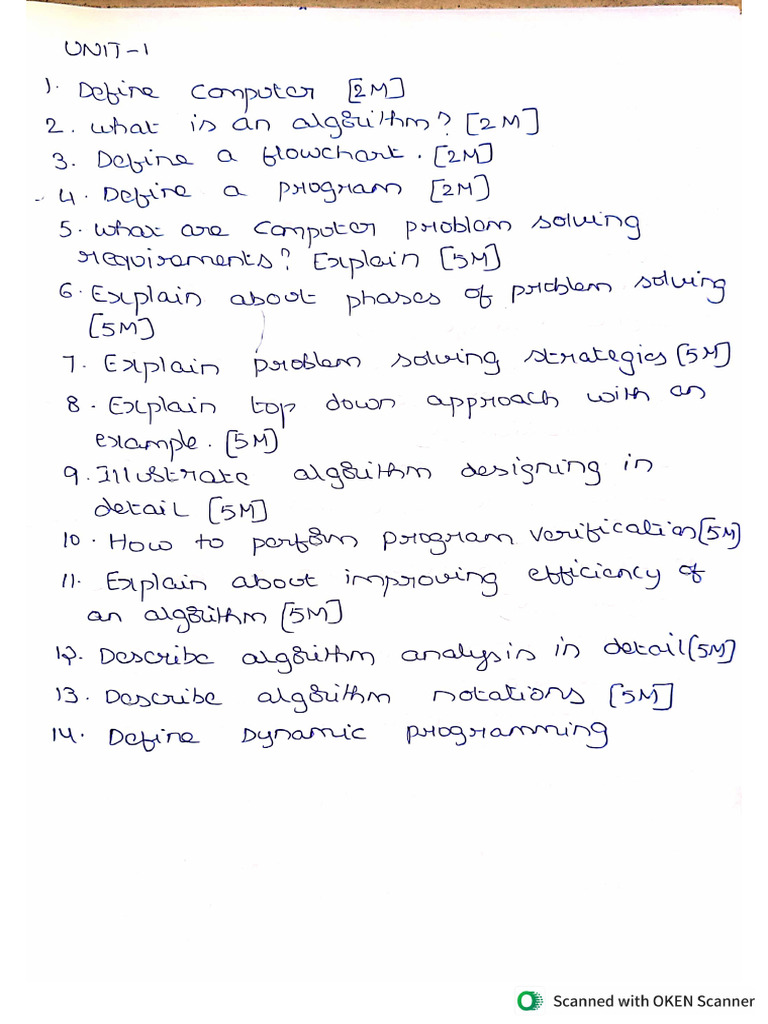 UNIT-1
1. Define computer [2M]
2. what is an algorithm? [2M]
3. Define a flowchart. [2M]
4. Define a program [2M]
5. what are computer problem solving
requirements? Explain [5M]
6. Explain about phases of problem solving
[5M]
7. Explain problem solving strategies [5M]
8. Explain top down approach with an
example. [5M]
9. Illustrate algorithm designing in
detail [5M]
10. How to perform program verification [5M]
11. Explain about improving efficiency of
an algorithm [5M]
12. Describe algorithm analysis in detail [5M]
13. Describe algorithm notations [5M]
14. Define Dynamic programming
Scanned with OKEN Scanner